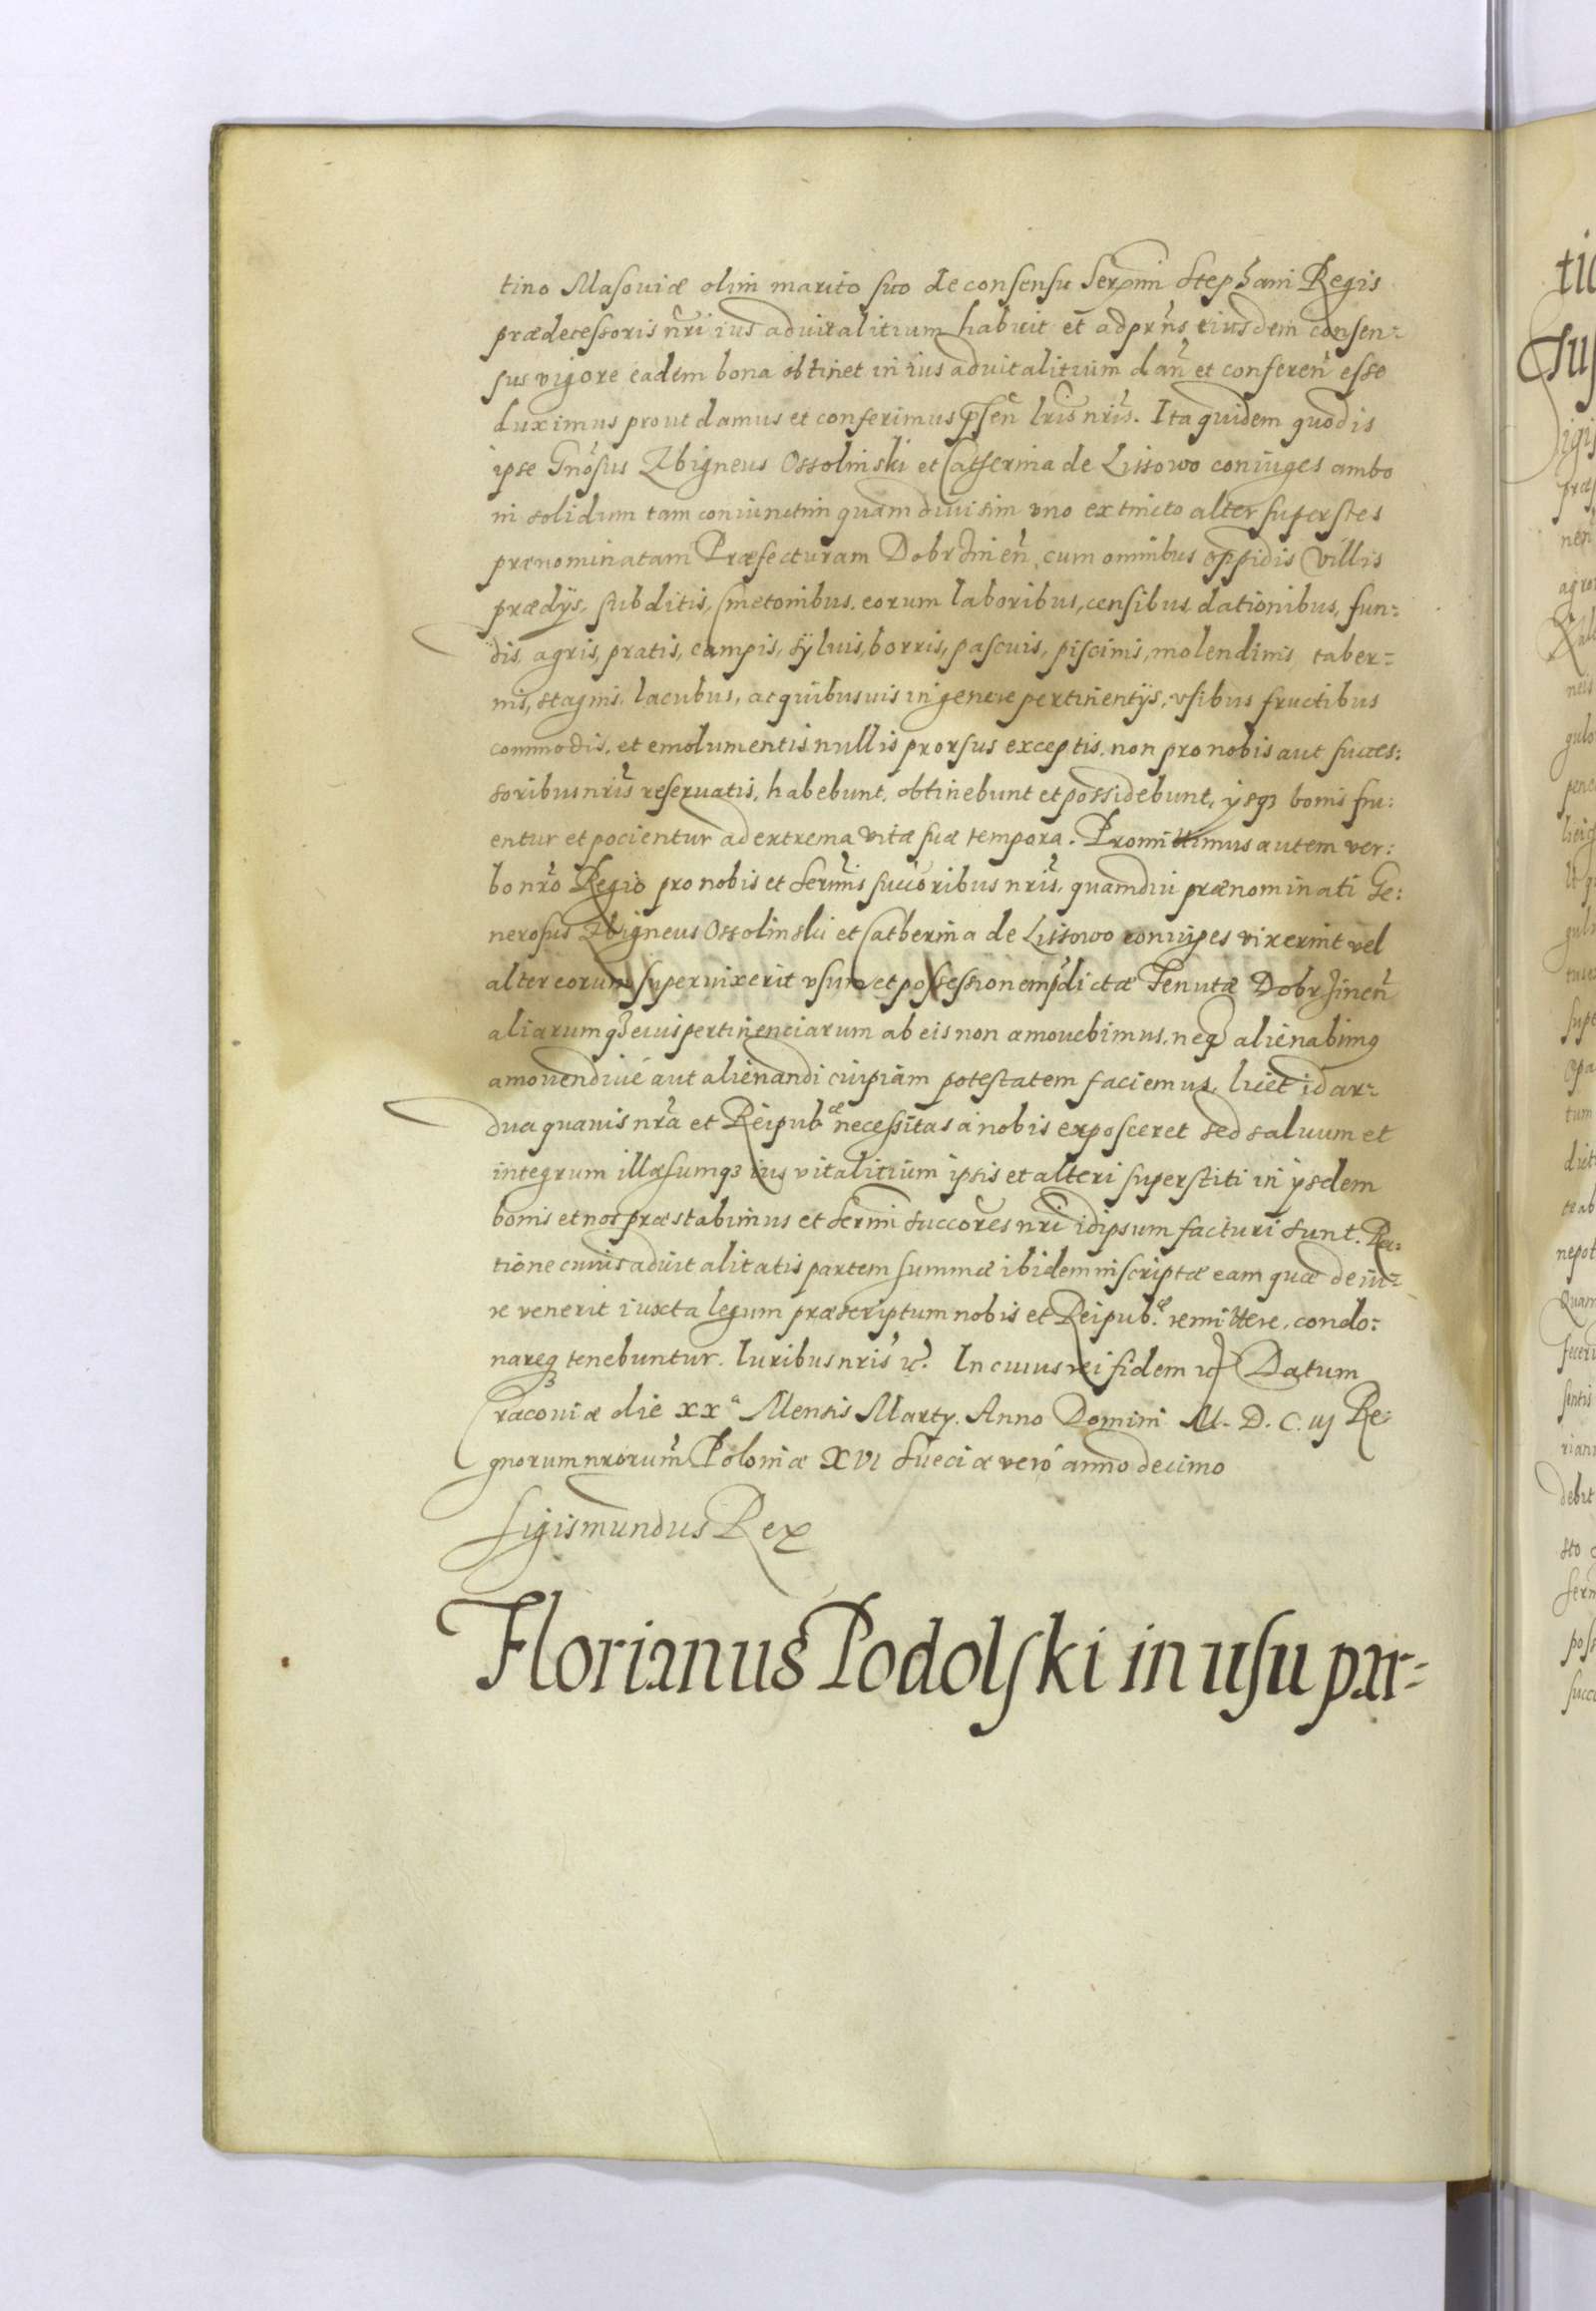 tino Masouiæ olim marito suo de consensu Serẽnmi Stephani Regis
prædecessoris nr̃i ius aduitalitium habuit et adprñs eiusdem consen=
sus vigore eadem bona obtinet in ius aduitalitium dañ et conferen̄ esse
duximus prout damus et conferimus p̃sen̄ lr̃is nr̃is. Ita quidem quod is
ipse Gnõsus Zbigneus Ossolinski et Catherina de Lissowo coniuges ambo
in solidum tam coniunctim quam diuisim vno extincto alter superstes
prænominatam Præfecturam Dobrzinen̄, cum omnibus oppidis villis
prædijs, subditis, cmetonibus. eorum laboribus, censibus dationibus, fun=
dis, agris, pratis, campis, syluis, borris, pascuis, piscinis, molendinis taber=
nis, stagnis, lacubus, ac quibusuis in genere pertinentijs, vsibus fructibus
commodis, et emolumentis nullis prorsus exceptis. non pro nobis aut succes:
soribus nr̃is reseruatis, habebunt, obtinebunt et possidebunt, ijsqȝ bonis fru:
entur et pocientur ad extrema vitæ suæ tempora. Promittimus autem ver:
bo nr̃o Regio pro nobis et Sermis succoribus nr̃is, quamdiu prænominati Ge:
nerosus Zbigneus Ossolinski et Catherina de Lissowo coniuges vixerint vel
alter eorum superuixerit vsum et possessionem p̃dictæ Tenutæ Dobrzinen̄
aliarumqȝ eius pertinenciarum ab eis non amouebimus, neqȝ alienabimꝯ
amouendiue aut alienandi cuipiam potestatem faciemus, licet id ar=
dua quauis nr̃a et Reipub.æ necessitas a nobis exposceret sed saluum et
integrum illæsumqȝ ius vitalitium ipsis et alteri superstiti in ijsdem
bonis et nos præstabimus et Sermi succores nr̃i idipsum facturi sunt. Ra=
tione cuius aduitalitatis partem summæ ibidem inscriptæ eam quæ de iu=
re venerit iuxta legum præscriptum nobis et Reipub.æ remittere, condo:
nareqȝ tenebuntur. Iuribus nr̃is ꝛc̃. In cuius rei fidem ꝛc̃ Datum
Cracouiæ die xxa Mensis Martij. Anno Domini M. D. C. iij Re:
gnorum nrorum Poloniæ XVI Sueciæ vero anno decimo
Sigismundus Rex
Florianus Podolski in usu par=